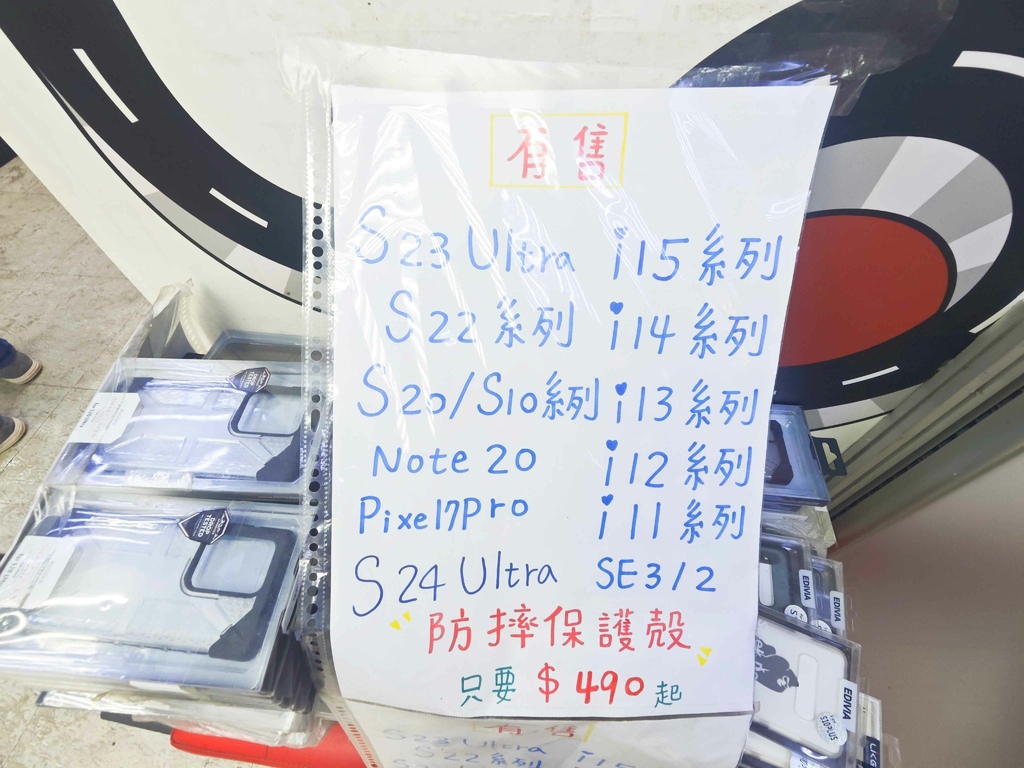 有售
S23 Ultra i15系列
S22系列 i14系列
S20/S10系列 i13系列
Note 20 i12系列
Pixel7Pro i11系列
S24 Ultra SE3/2
防摔保護殼
只要 $490 起
有售
S23 Ultra i15
S22系列
EDIVIA
EDIVIA
EDIVIA
S10 PLUS